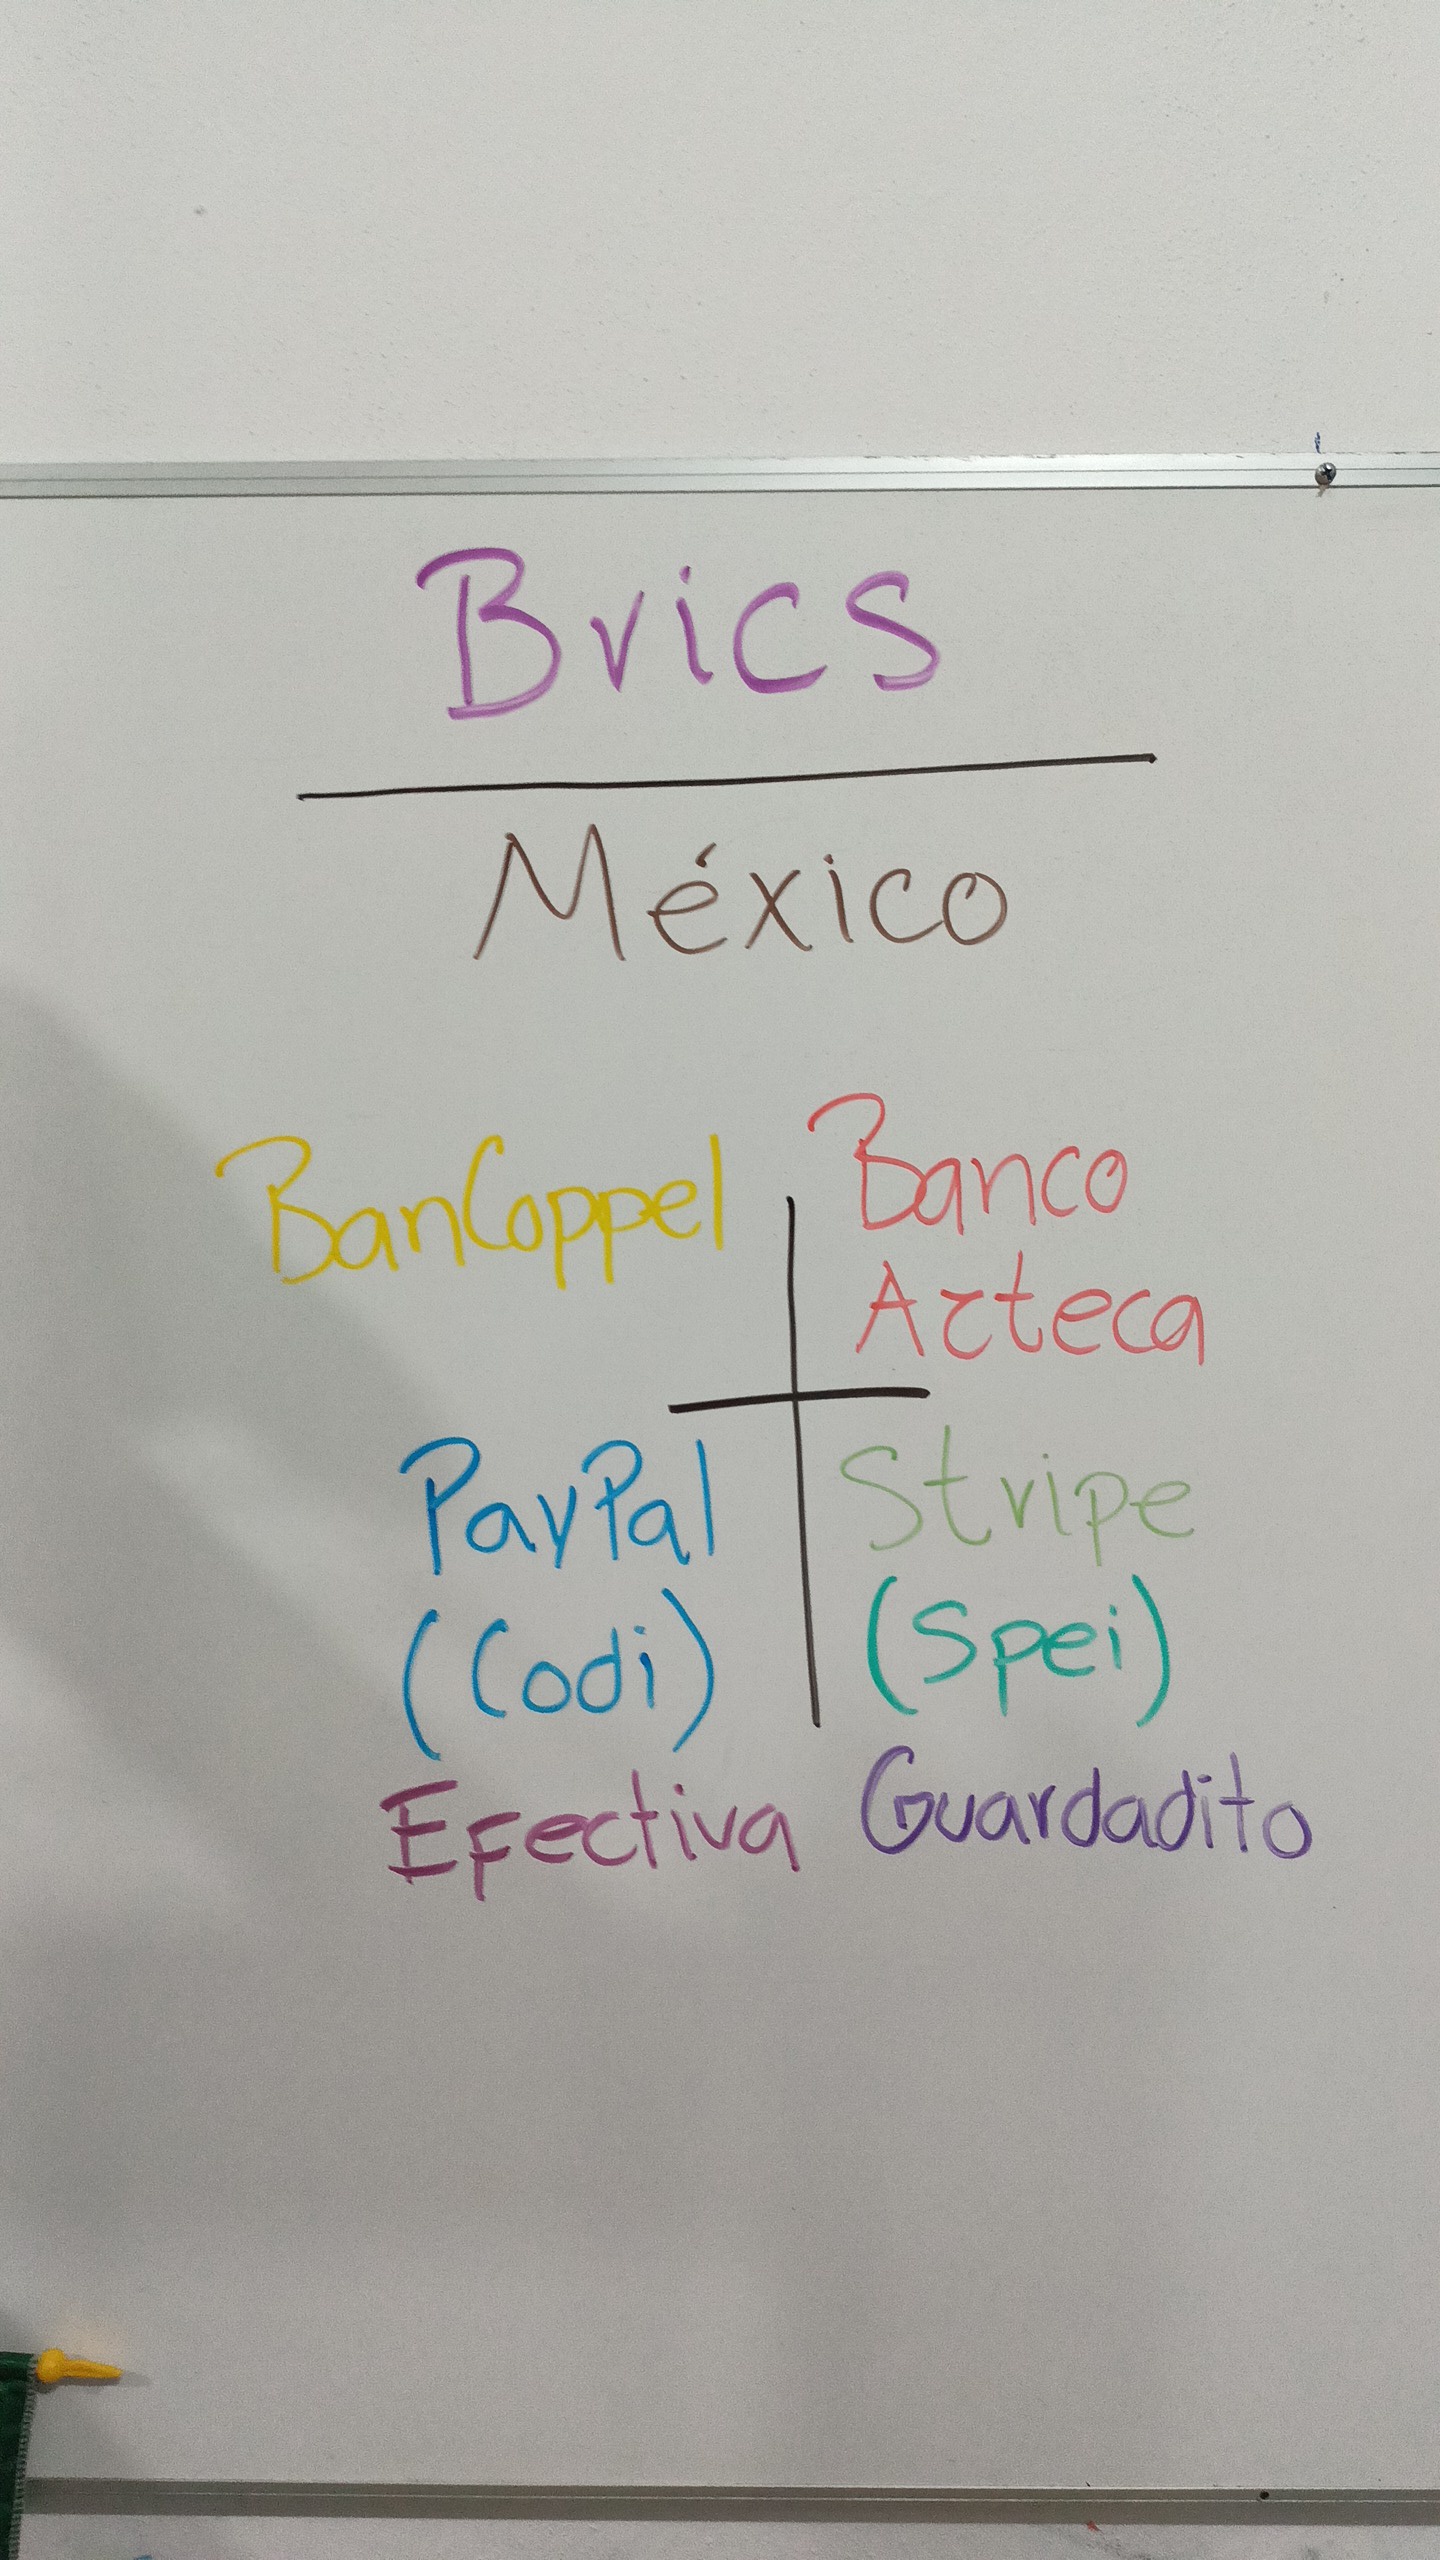 Brics
México
BanCoppel
Banco
Azteca
PayPal
(Codi)
Stripe
(Spei)
Efectiva
Guardadito